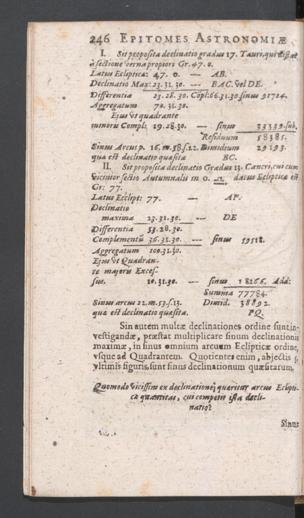 246 EPITOMES ASTRONOMIÆ
I. Sit proposita declinatio gradus 17. Tauri, qui distat
à sectione verna propiori Gr. 47. 0.
Latus Eclipticæ: 47. 0. — AB.
Declinatio Max: 23. 31. 30. — BAC. vel DE.
Differentia 23. 28. 30. Cõpl: 66. 31. 30. sinus 91724.
Aggregatum 70. 31. 30.
Ejus vt quadrante
minoris Compl: 19. 28. 30. — sinus 33339. sub.
Residuum 58385.
Sinus Arcus p. 16. m. 58. s. 22. Dimidium 29193.
qua est declinatio quæsita BC.
II. Sit proposita declinatio Gradus 13. Cancri, cui cum
vicinior sectio Autumnalis in 0. ♎ datus Eclipticæ est
Gr: 77.
Latus Eclipt: 77. — AP.
Declinatio
maxima 23. 31. 30. — DE
Differentia 53. 28. 30.
Complementũ 36. 31. 30. — sinus 59518.
Aggregatum 100. 31. 30.
Ejus vt Quadran-
te majoris Exces:
sus. 10. 31. 30. — sinus 18266. Add:
Summa 77784.
Sinus arcus 22. m. 53. s. 13. Dimid. 38892.
qua est declinatio quæsita. PQ.
Sin autem multæ declinationes ordine sunt in-
vestigandæ, præstat multiplicare sinum declinationis
maximæ, in sinus omnium arcuum Eclipticæ ordine,
vsque ad Quadrantem. Quotientes enim, abjectis 5.
vltimis figuris, sunt sinus declinationum quæsitarum.
Quomodo vicissim ex declinatione, quæritur arcus Eclipti-
cæ quantitas, qui competit ista decli-
natio?
Sinus